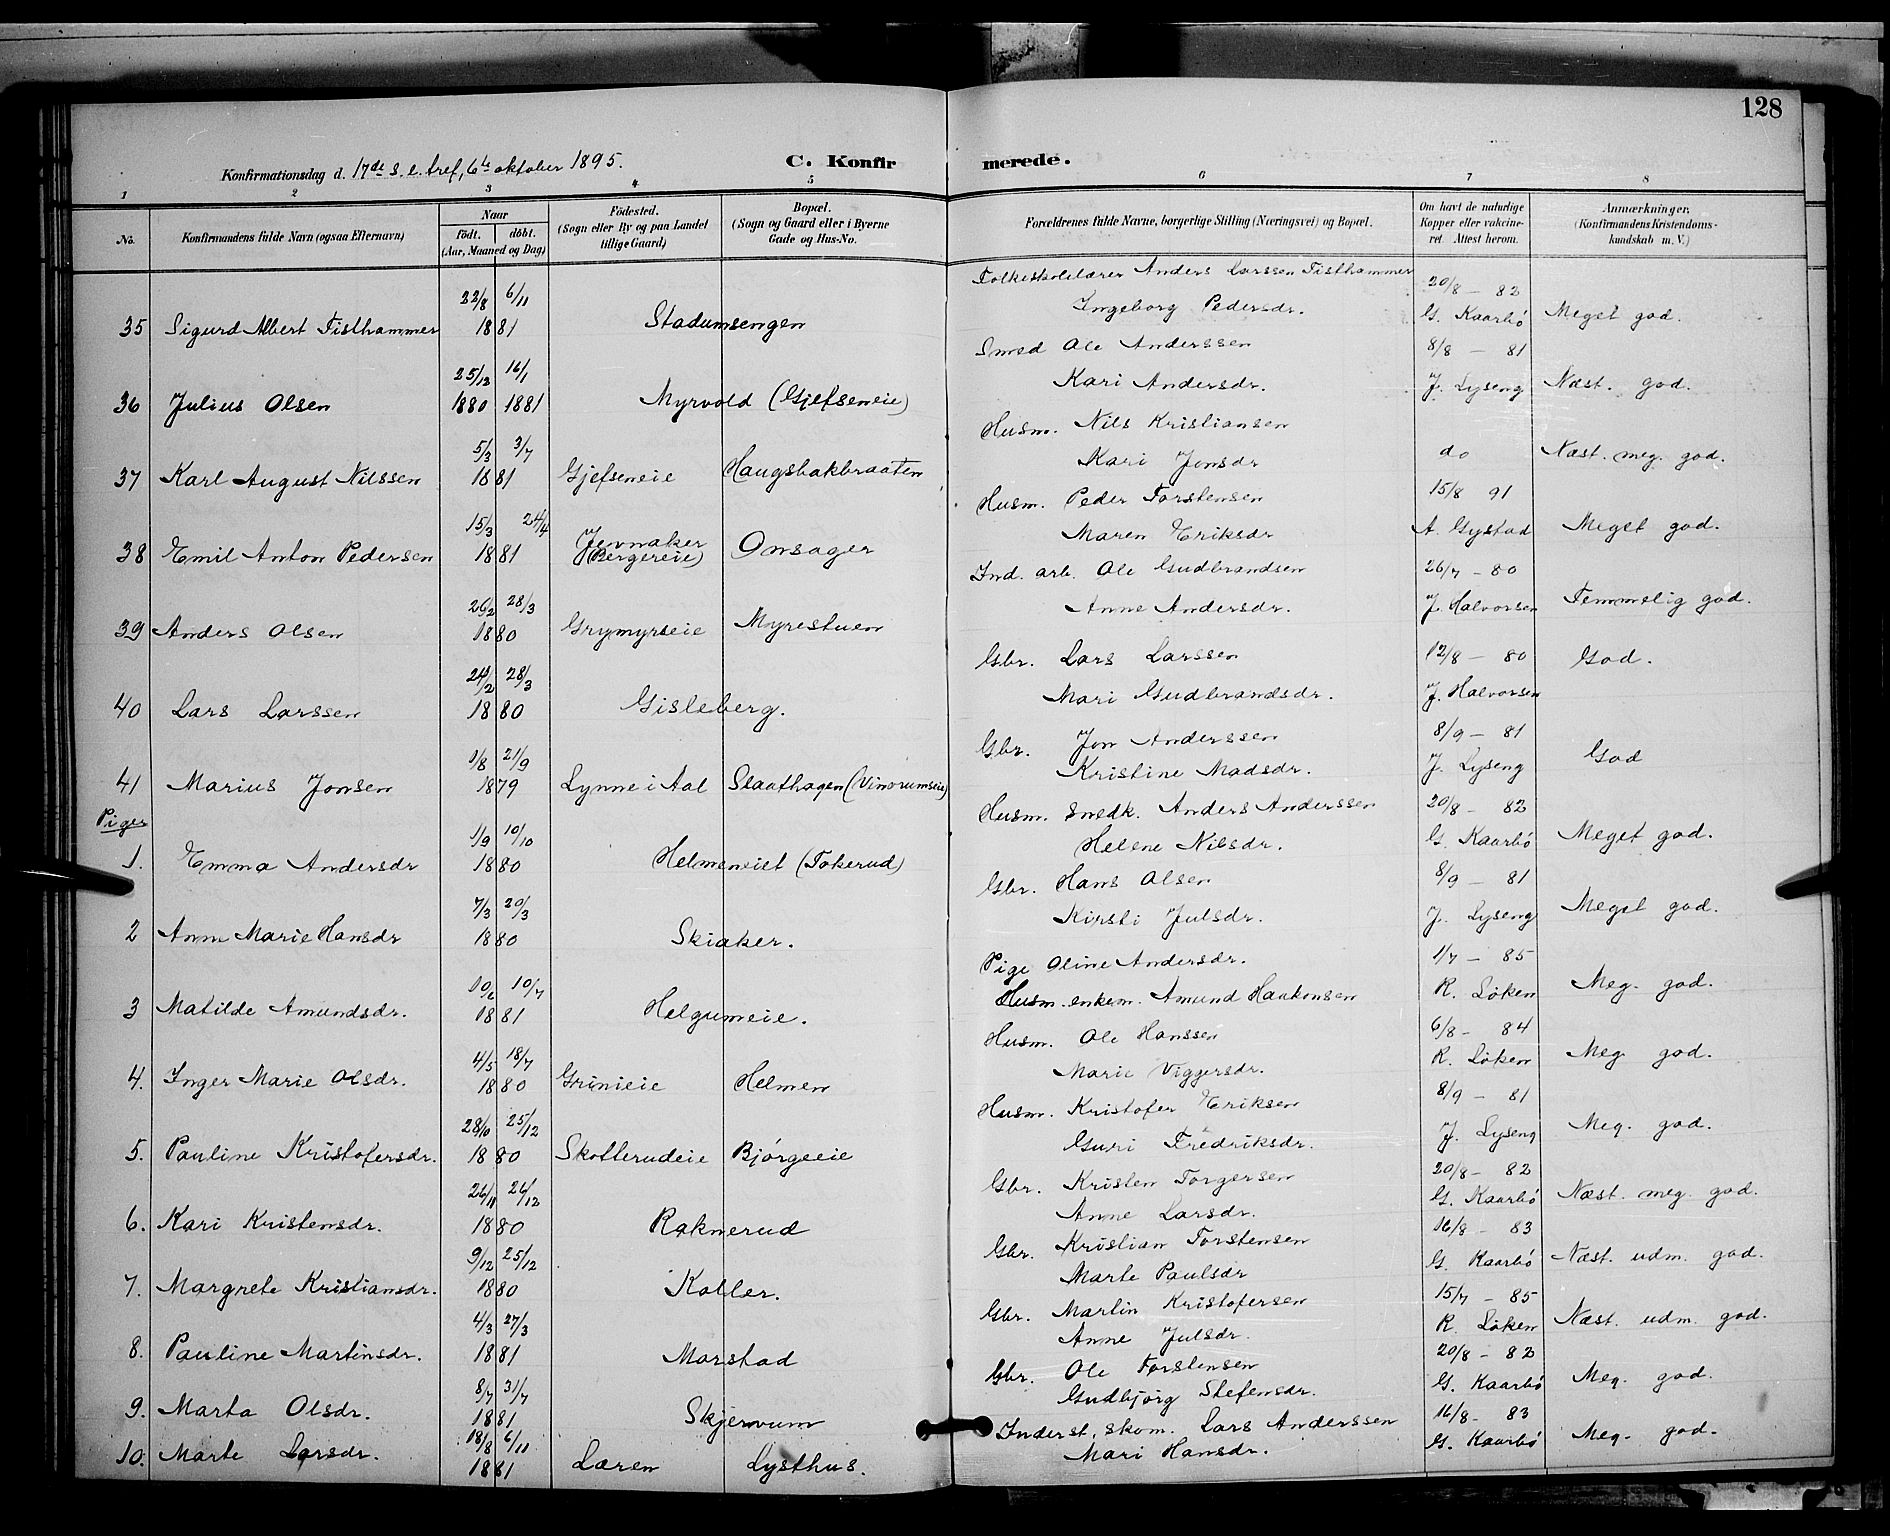 128
Konfirmationsdag d. 17de s. e. tref, 6te oktober 1895.
C. Konfirmerede.
1 2 3 4 5 6 7 8
No.
Konfirmandens fulde Navn (ogsaa Efternavn)
Naar
födt. döbt.
(Aar, Maaned og Dag)
Födested.
(Sogn eller By og paa Landet
tillige Gaard)
Bopæl.
(Sogn og Gaard eller i Byerne
Gade og Hus-No.
Forældrenes fulde Navne, borgerlige Stilling (Næringsvei) og Bopæl.
Om havt de naturlige
Kopper eller vakcine-
ret. Attest herom.
Anmærkninger.
(Konfirmandens Kristendoms-
kundskab m. V.)
22/8 6/11 Folkeskolelærer Anders Larssen Fisthammer 20/8 - 82
35 Sigurd Albert Fisthammer 1881 Stadumsengen Ingeborg Pedersdr. G. Kaarbö Meget god.
25/12 16/1 Smed Ole Anderssen 8/8 - 81
36 Julius Olsen 1880 1881 Myrvold (Gjefseneie) Kari Andersdr. J. Lyseng Næst. god.
5/3 3/7 Husm. Nils Kristiansen
37 Karl August Nilssen 1881 Gjefseneie Haugsbakbraaten Kari Jonsdr do Næst. meg. god.
15/3 24/4 Husm. Peder Torstensen 15/8 91
38 Emil Anton Pedersen 1881 Jevnaker (Bergereie) Onsager Maren Eriksdr A. Gystad Meget god.
26/2 28/3 Ind. arb. Ole Gudbrandsen 26/7 - 80
39 Anders Olsen 1880 Grymyrseie Myrestuen Anne Andersdr. J. Halvorsen Temmelig god.
24/2 28/3 Gbr. Lars Larssen 12/8 - 80 God.
40 Lars Larssen 1880 Gisleberg. Mari Gudbrandsdr. J. Halvorsen
1/8 21/9 Gbr. Jon Anderssen 8/9 - 81
41 Marius Jonsen 1879 Lynne i Aal Slaathagen (Vinorumseie) Kristine Madsdr. J. Lyseng God
Piger
1/9 10/10 Husm. snedk. Anders Anderssen 20/8 - 82
1. Emma Andersdr 1880 Helmeneiet (Tokerud) Helene Nilsdr. G. Kaarbö Meget god.
7/3 20/3 Gbr. Hans Olsen 8/9 - 81
2 Anne Marie Hansdr 1880 Skiaker. Kirsti Julsdr. J. Lyseng Meget god.
10/6 10/7 Pige Oline Andersdr. 1/7 - 85
3 Matilde Amundsdr. 1881 Helgumeie. Husm. enkem. Amund Haakonsen R. Löken Meg. god.
4/5 18/7 Husm. Ole Hanssen 6/8 - 84
4. Inger Marie Olsdr. 1880 Grinieie Helmen Marie Viggersdr. R. Löken Meg. god.
28/10 25/12 Husm. Kristofer Eriksen 8/9 - 81
5. Pauline Kristofersdr. 1880 Skollerudeie Bjørgeeie Guri Fredriksdr. J. Lyseng Meg. god.
26/11 26/12 Gbr. Kristen Torgersen 20/8 - 82
6. Kari Kristensdr. 1880 Raknerud Anne Larsdr. G. Kaarbö Næst. meg. god.
9/12 25/12 Gbr. Kristian Torstensen 16/8 - 83
7. Margrete Kristiansdr. 1880 Koller. Marte Paulsdr G. Kaarbö Næst. udm. god.
4/3 27/3 Gbr. Martin Kristofersen 15/7 - 85
8. Pauline Martinsdr. 1881 Morstad Anne Julsdr. R. Löken Næst. udm. god.
8/7 31/7 Gbr. Ole Torstensen 20/8 - 82
9. Marta Olsdr. 1881 Skjervum Gudbjørg Stefensdr. G. Kaarbö Meg. god.
18/8 6/11 Inderst, skom. Lars Anderssen 16/8 - 83
10. Marte Larsdr. 1881 Læren Lysthus. Mari Hansdr. G. Kaarbö Meg. god.